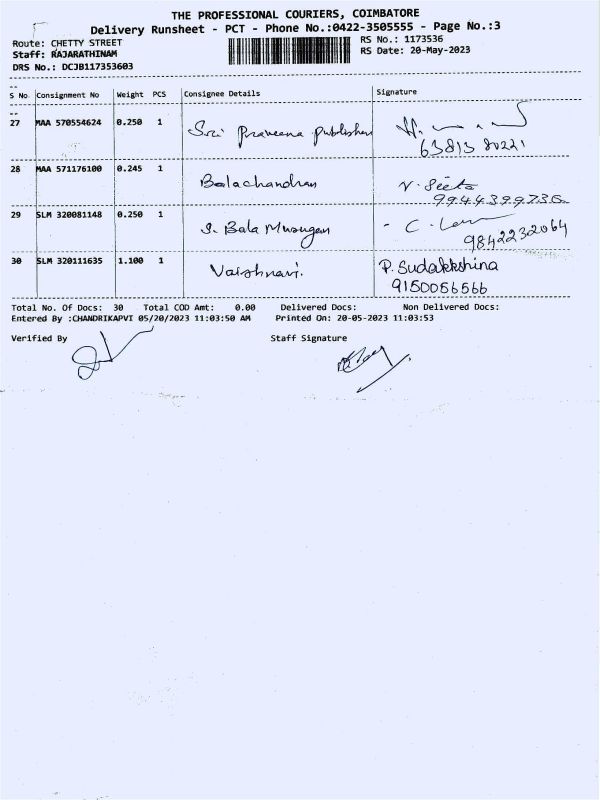 THE PROFESSIONAL COURIERS, COIMBATORE
Delivery Runsheet - PCT - Phone No.:0422-3505555 - Page No.:3
Route: CHETTY STREET
RS No.: 1173536
Staff: RAJARATHINAM
RS Date: 20-May-2023
DRS No.: DCJB117353603
S No Consignment No Weight PCS Consignee Details Signature
27 MAA 570554624 0.250 1 Sri Praveena Publisher
63813 80221
28 MAA 571176100 0.245 1 Balachandran V. Seeta
9944399736
29 SLM 320081148 0.250 1 S. Bala Murugan
9842232064
30 SLM 320111635 1.100 1 Vaishnavi. P. Sudakkshina
9150056566
Total No. Of Docs: 30 Total COD Amt: 0.00 Delivered Docs: Non Delivered Docs:
Entered By :CHANDRIKAPVI 05/20/2023 11:03:50 AM Printed On: 20-05-2023 11:03:53
Verified By Staff Signature